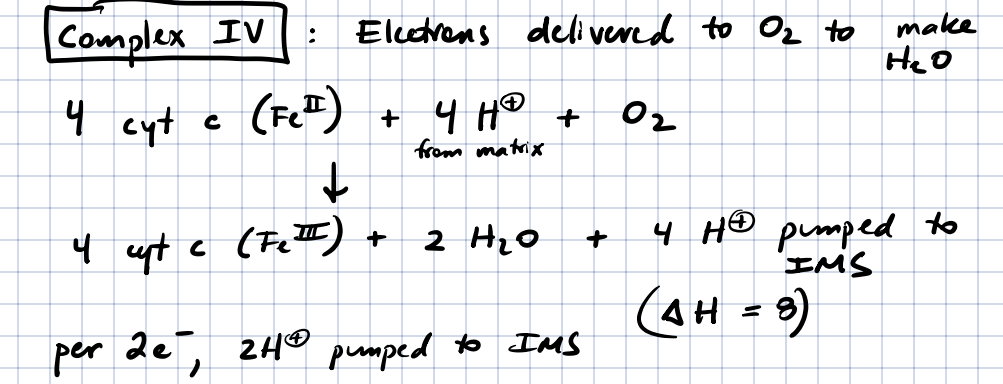 Complex IV : Electrons delivered to O₂ to make
H₂O
4 cyt c (Feᴵᴵ) + 4 H⊕ + O₂
from matrix
↓
4 cyt c (Feᴵᴵᴵ) + 2 H₂O + 4 H⊕ pumped to
IMS
(ΔH = 8)
per 2e⁻, 2H⊕ pumped to IMS